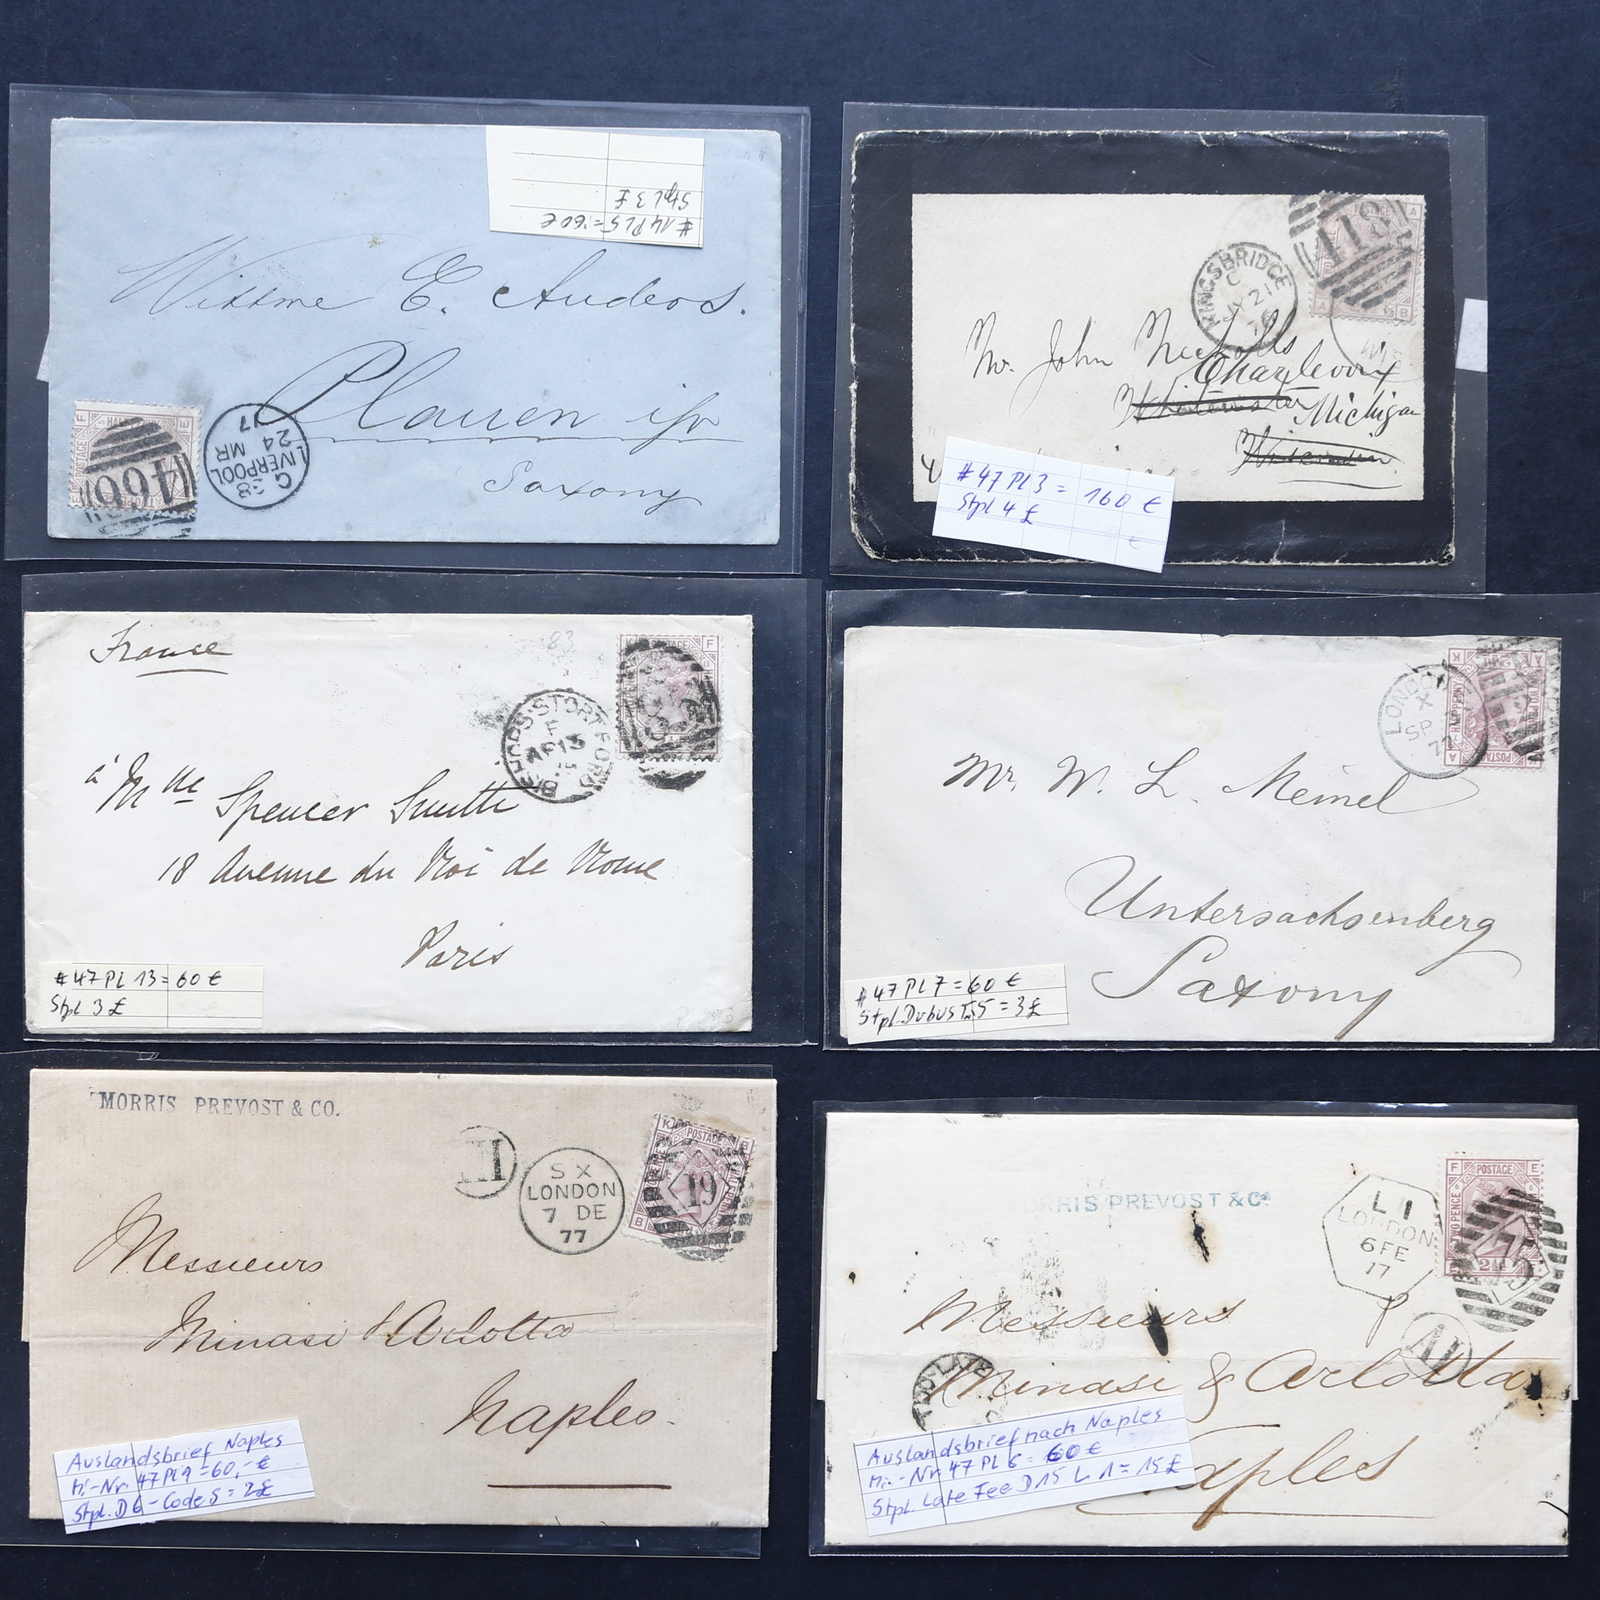 # 14 PL5 = 60 €
Stpl 3 £
E. Anders.
Plauen i/v
Saxony
466
G
LIVERPOOL
24 MR
77
418
KINGSBRIDGE
C
JY 21
76
Mr. John Nicholls
Charlevoix
Michigan
Wisconsin
# 47 Pl 3 = 160 €
Stpl 4 £
€
France
BISHOPS·STORTFORD
F
AP 13
F
à Mlle Spencer Smith
18 Avenue du Roi de Rome
Paris
# 47 PL 13 = 60 €
Stpl 3 £
LONDON
X
SP
77
K A
POSTAGE
Mr. W. L. Meinel
Untersachsenberg
Saxony
# 47 PL 7 = 60 €
Stpl. Dubus T.5 = 3 £
MORRIS PREVOST & CO.
SX
LONDON
7 DE
77
K POSTAGE B
19
B
Messieurs
Minasi & Arlotta
Naples.
Auslandsbrief Naples
Mi-Nr. 47 Pl 9 = 60,- €
Stpl. D6 - Code S = 2 £
MORRIS PREVOST & Co
L 1
LONDON
6 FE
77
F POSTAGE E
75
A1
TOO-LATE
Messieurs
Minasi & Arlotta
Naples
Auslandsbrief nach Naples
Mi.-Nr. 47 PL 6 = 60 €
Stpl. Late Fee D15 L1 = 15 £